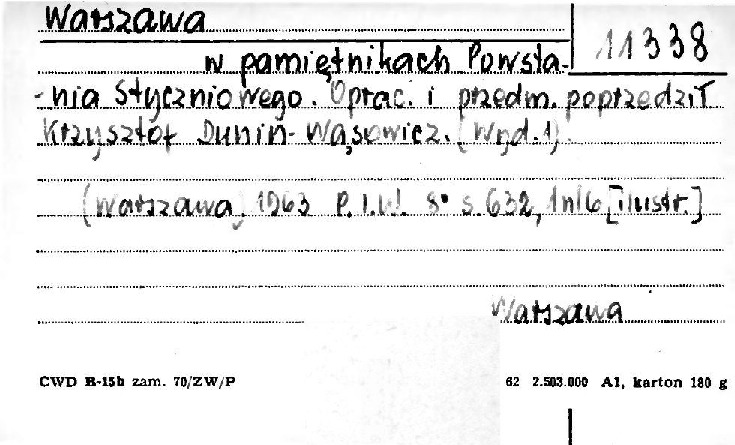 Warszawa
11338
w pamiętnikach Powsta-
-nia Styczniowego. Oprac. i przedm. poprzedził
Krzysztof Dunin-Wąsowicz. (Wyd. 1).
(Warszawa) 1963 P.I.W. 8° s. 632, 1nl6 [ilustr.]
Warszawa
CWD B-15b zam. 70/ZW/P
62 2.503.000 A1, karton 180 g